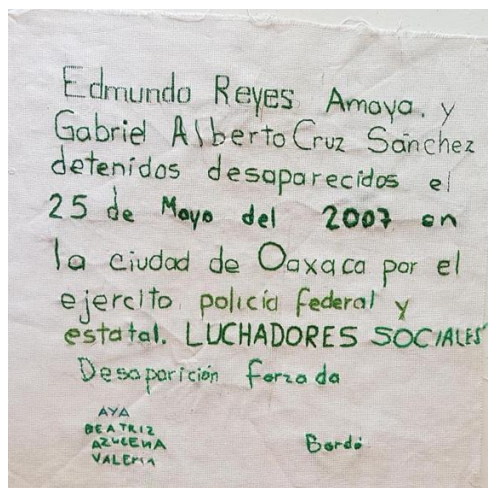 Edmundo Reyes Amaya. y
Gabriel Alberto Cruz Sánchez
detenidos desaparecidos el
25 de Mayo del 2007 en
la ciudad de Oaxaca por el
ejercito policía federal y
estatal. LUCHADORES SOCIALES
Desaparición forzada
AYA
BEATRIZ
AZUCENA
VALERIA
Bordó